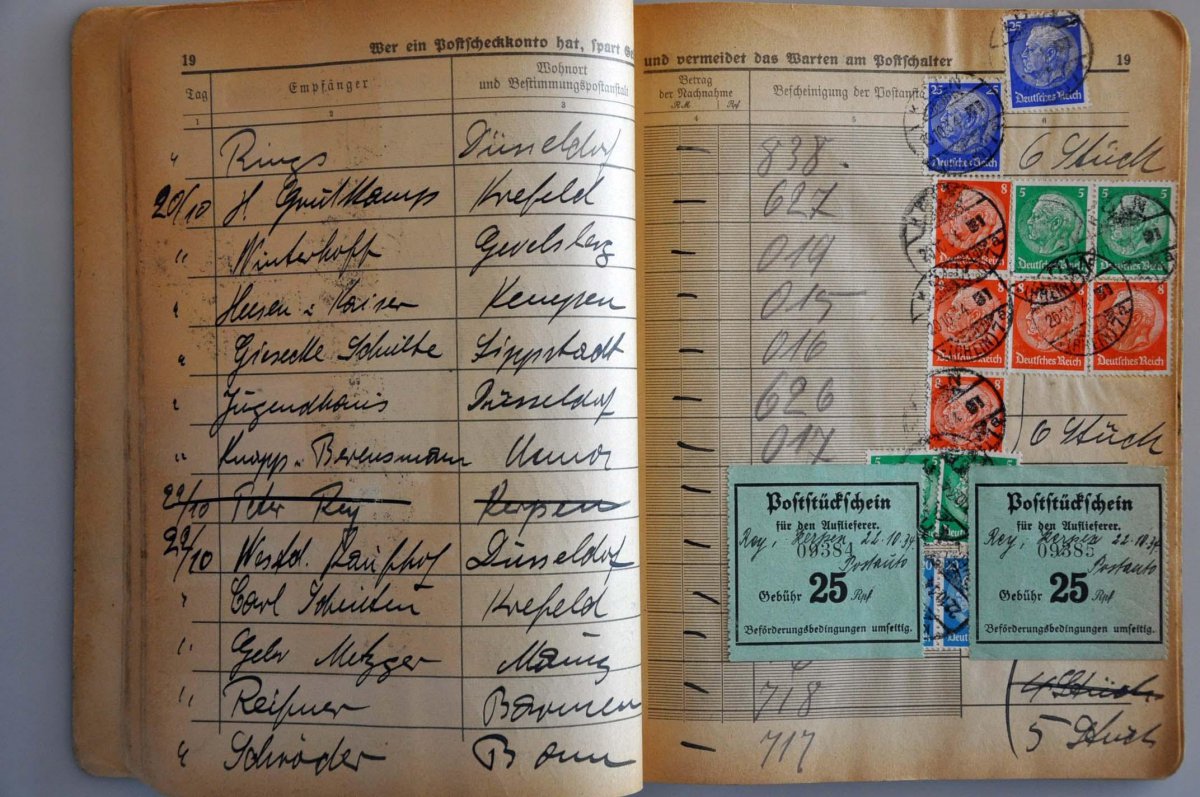 19 Wer ein Postscheckkonto hat, spart Ge
Tag Empfänger Wohnort und Bestimmungspostanstalt
1 2 3
" Rings Düsseldorf
20/10 H. Grütkamp Krefeld
" Winterhoff Gevelsberg
" Heesen u. Kaiser Kempen
" Giesecke Schulte Lippstadt
" Jugendhaus Düsseldorf
" Knapp u. Berensmann Unna
22/10 Peter Rey Kerpen
22/10 Westd. Kaufhof Düsseldorf
" Carl Schulten Krefeld
" Gebr Metzger Mainz
" Reißner Barmen
" Schröder Bonn
und vermeidet das Warten am Postschalter 19
Betrag der Nachnahme Bescheinigung der Postansta
RM Rpf
4 5 6
838.
6 Stück
627
019
015
016
626
017
6 Stück
718
4 Stück
717
5 Stück
25 25
Deutsches Reich
25 25
Deutsches Reich
8 5 5
Deutsches Reich Deutsches Reich
8 8
Deutsches Reich Deutsches Reich Deutsches Reich
8
Deutsches Reich
5 5
Poststückschein
für den Auflieferer.
Rey, Kerpen 22.10.34
09384
Postauto
Gebühr 25 Rpf
Beförderungsbedingungen umseitig.
Poststückschein
für den Auflieferer.
Rey, Kerpen 22.10.34
09385
Postauto
Gebühr 25 Rpf
Beförderungsbedingungen umseitig.